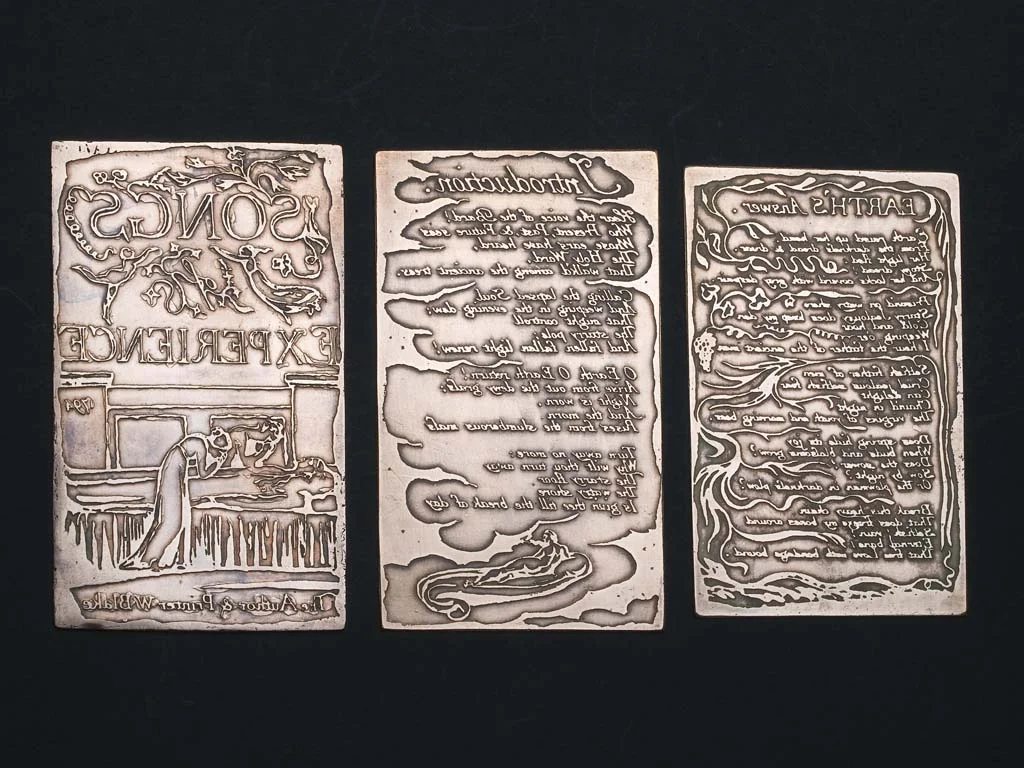 SONGS
of
EXPERIENCE
1794
The Author & Printer W Blake
Introduction.
Hear the voice of the Bard!
Who Present, Past, & Future sees
Whose ears have heard,
The Holy Word,
That walk'd among the ancient trees.
Calling the lapsed Soul
And weeping in the evening dew;
That might controll
The starry pole;
And fallen fallen light renew!
O Earth O Earth return!
Arise from out the dewy grass;
Night is worn,
And the morn
Rises from the slumberous mass.
Turn away no more:
Why wilt thou turn away
The starry floor
The watry shore
Is givn thee till the break of day
EARTH'S Answer.
Earth rais'd up her head,
From the darkness dread & drear.
Her light fled:
Stony dread!
And her locks cover'd with grey despair.
Prison'd on watry shore
Starry Jealousy does keep my den
Cold and hoar
Weeping o'er
I hear the father of the ancient men
Selfish father of men
Cruel jealous selfish fear
Can delight
Chain'd in night
The virgins of youth and morning bear.
Does spring hide its joy
When buds and blossoms grow?
Does the sower
Sow by night?
Or the plowman in darkness plow?
Break this heavy chain
That does freeze my bones around
Selfish! vain!
Eternal bane!
That free Love with bondage bound.